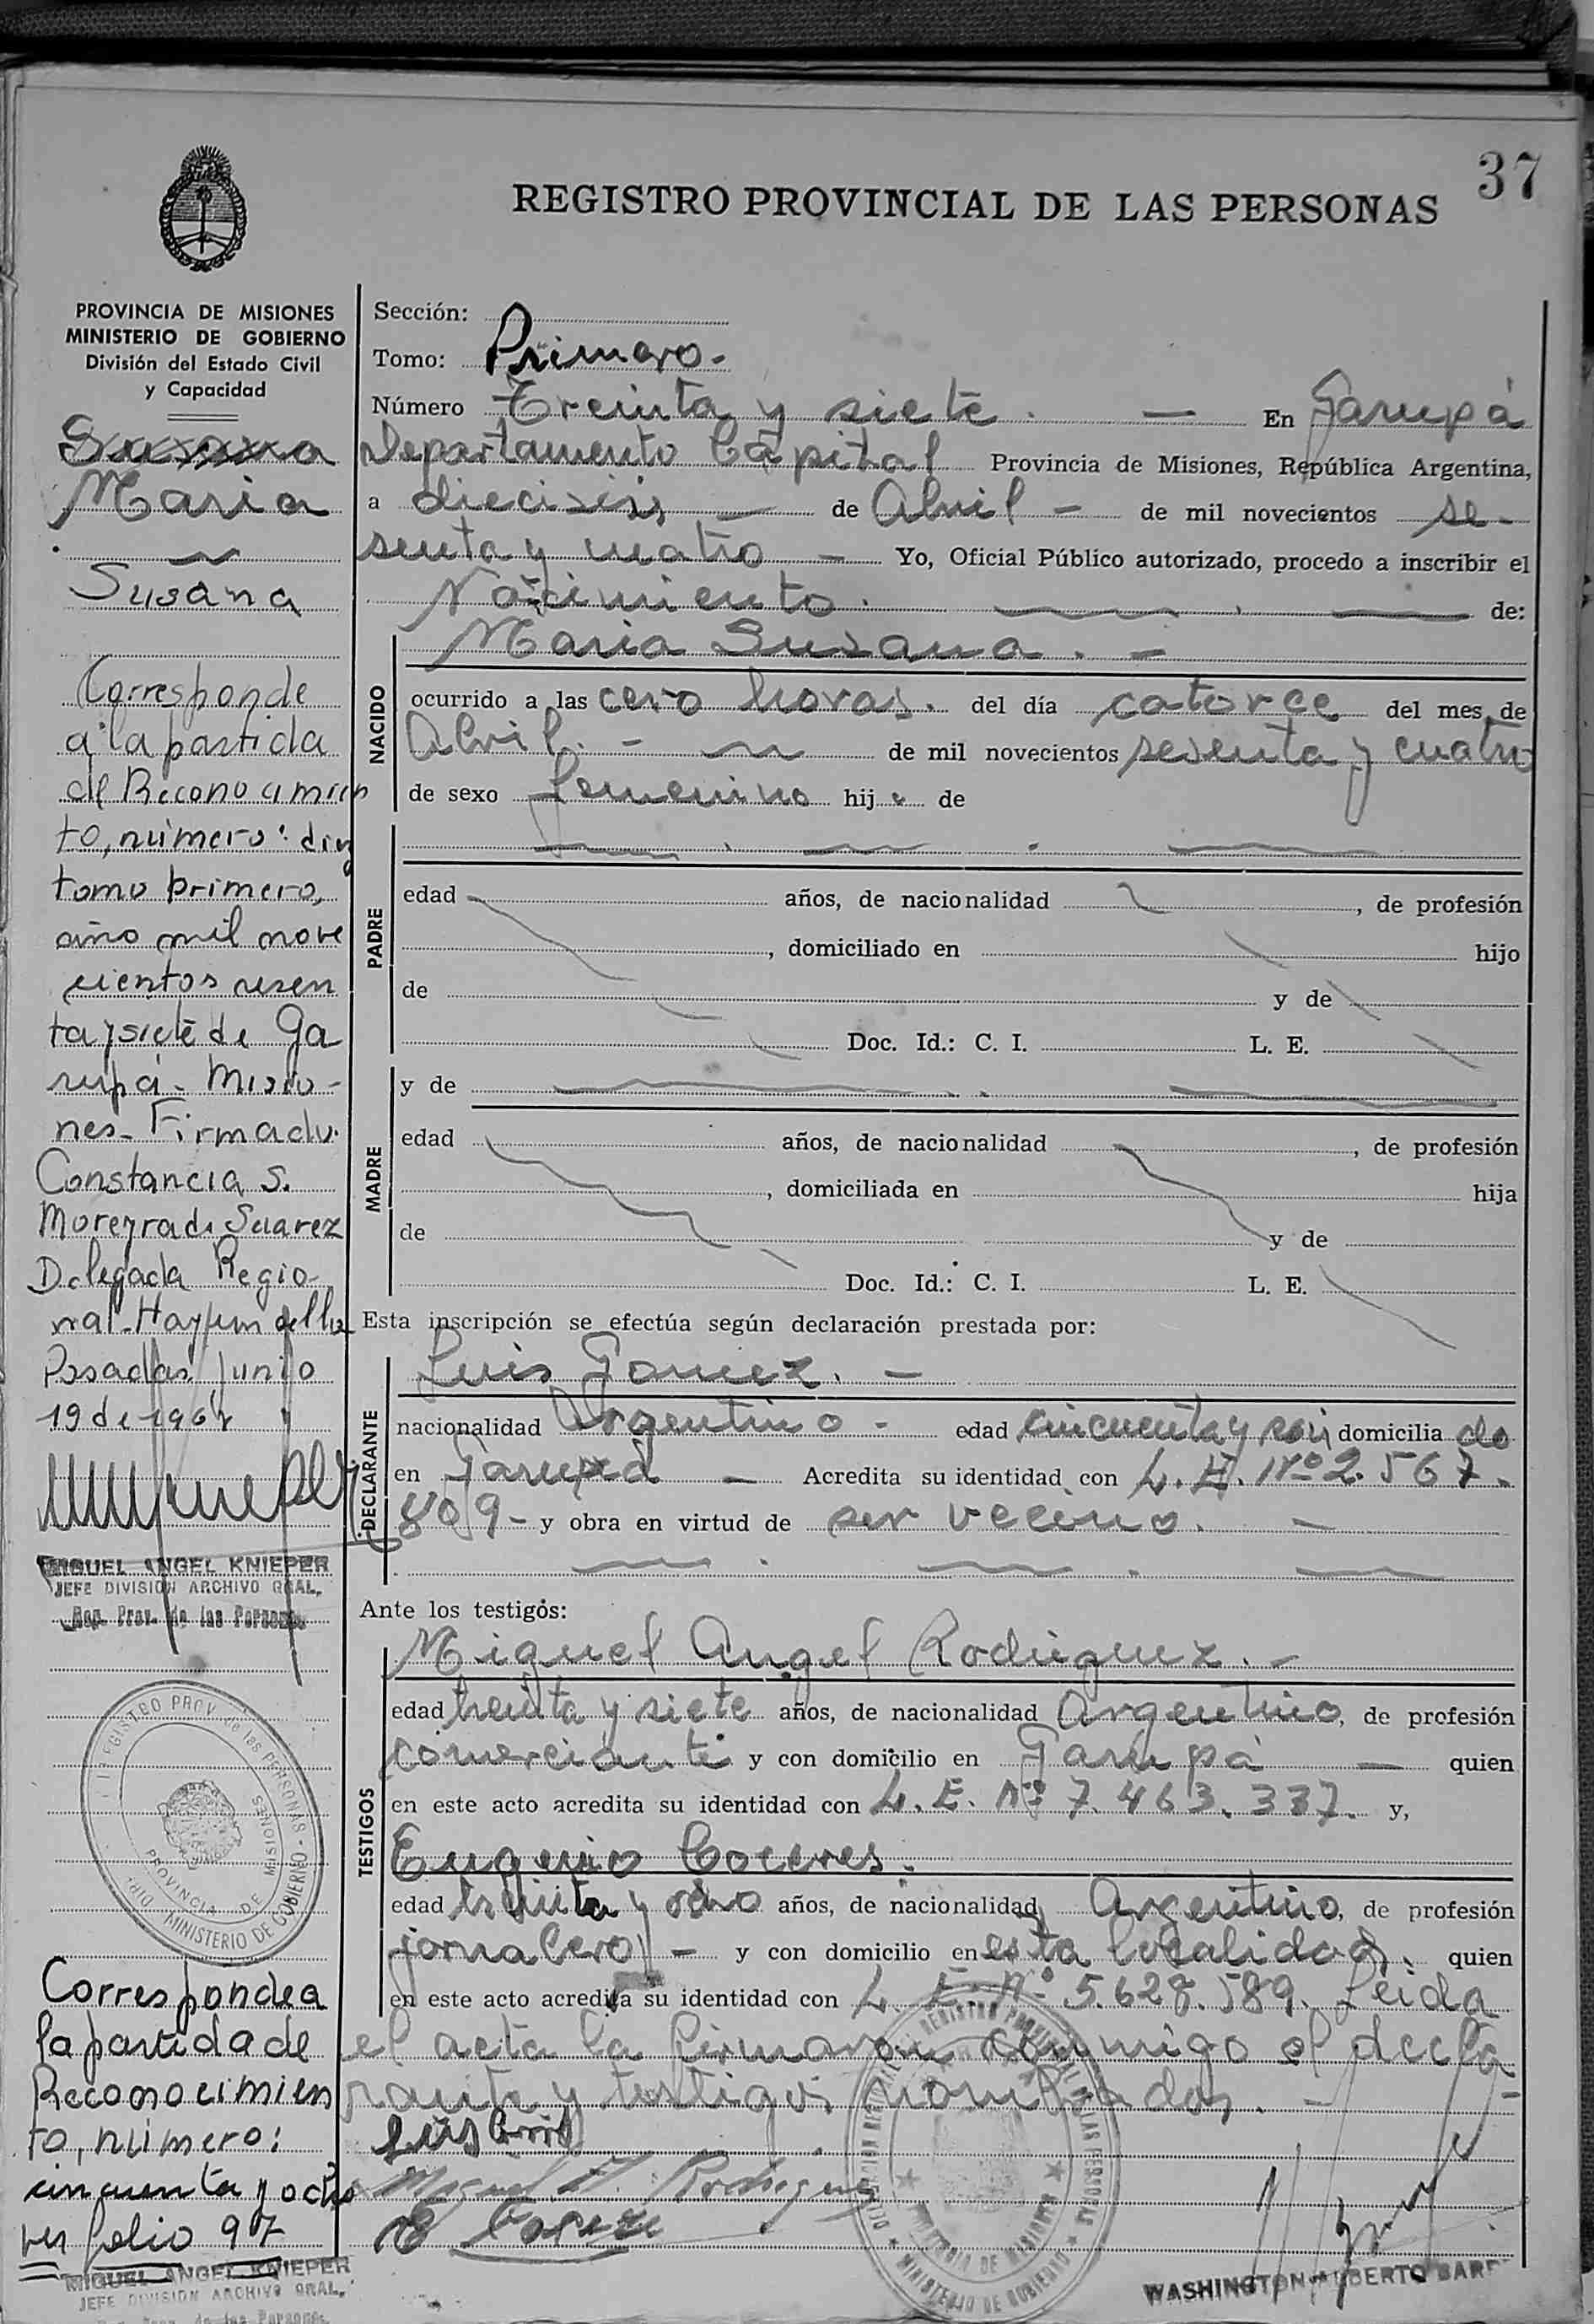 37
REGISTRO PROVINCIAL DE LAS PERSONAS
PROVINCIA DE MISIONES
MINISTERIO DE GOBIERNO
División del Estado Civil
y Capacidad
Maria
Susana
Corresponde
a la partida
de Reconocimien
to, número: diez
tomo primero,
año mil nove
cientos sesen
ta y siete de Ga
rupá - Misio-
nes - Firmado:
Constancia S.
Moreyra de Suarez
Delegada Regio-
nal - Hay un sello
Posadas, Junio
19 de 1967
MIGUEL ANGEL KNIEPER
JEFE DIVISION ARCHIVO GRAL.
Reg. Prov. de las Personas
REGISTRO PROV. de las PERSONAS - MINISTERIO DE GOBIERNO
PROVINCIA DE MISIONES
Corresponde a
la partida de
Reconocimien
to, número:
cincuenta y ocho
ver folio 97
MIGUEL ANGEL KNIEPER
JEFE DIVISION ARCHIVO GRAL.
Sección:
Tomo: Primero.-
Número Treinta y siete. — En Garupá
Departamento Capital Provincia de Misiones, República Argentina,
a dieciseis — de Abril - de mil novecientos se-
senta y cuatro — Yo, Oficial Público autorizado, procedo a inscribir el
Nacimiento. de:
Maria Susana. -
NACIDO
ocurrido a las cero horas. del día catorce del mes de
Abril. - de mil novecientos sesenta y cuatro
de sexo femenino hija de
PADRE
edad años, de nacionalidad , de profesión
, domiciliado en hijo
de y de
Doc. Id.: C. I. L. E.
y de
MADRE
edad años, de nacionalidad , de profesión
, domiciliada en hija
de y de
Doc. Id.: C. I. L. E.
Esta inscripción se efectúa según declaración prestada por:
Luis Gomez. —
DECLARANTE
nacionalidad Argentino - edad cincuenta y seis domicilia do
en Garupá — Acredita su identidad con L.E. Nº 2.567.
809 - y obra en virtud de ser vecino. —
Ante los testigos:
Miguel Angel Rodriguez. -
TESTIGOS
edad treinta y siete años, de nacionalidad Argentino, de profesión
comerciante y con domicilio en Garupá — quien
en este acto acredita su identidad con L.E. Nº 7.463.337. y,
Eugenio Coceres.
edad treinta y ocho años, de nacionalidad Argentino, de profesión
jornalero - y con domicilio en esta localidad. quien
en este acto acredita su identidad con L.E. Nº 5.628.589. Leida
el acta la firmaron conmigo el decla
rante y testigos nombrados. -
Miguel A. Rodriguez
DELEGACION REGISTRO PROVINCIAL DE LAS PERSONAS
PROVINCIA DE MISIONES
MINISTERIO DE GOBIERNO
WASHINGTON ALBERTO